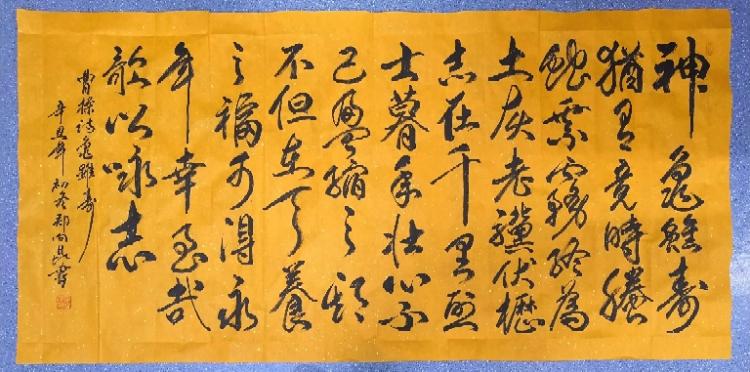 神龜雖壽
猶有竟時騰
蛇乘霧終為
土灰老驥伏櫪
志在千里烈
士暮年壮心不
已盈縮之期
不但在天養
之福可得永
年幸至哉
歌以咏志
曹操诗龜雖寿
辛丑年初冬